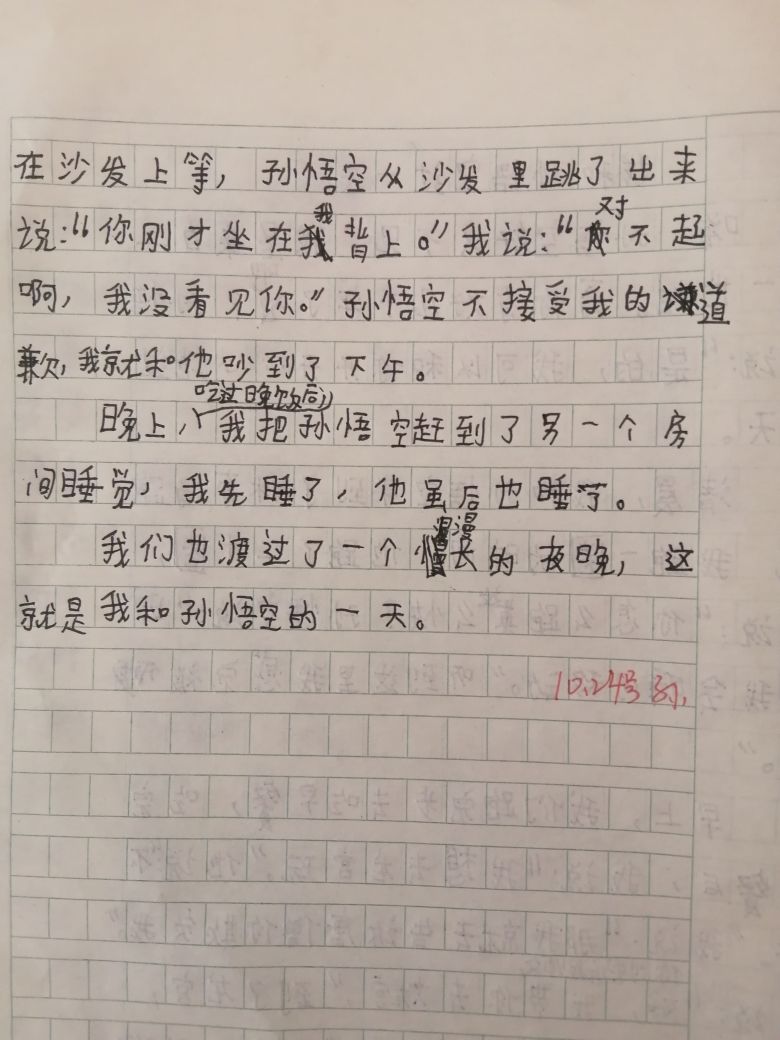 在沙发上等，孙悟空从沙发里跳了出来
说：“你刚才坐在我背上。”我说：“对不起
啊，我没看见你。”孙悟空不接受我的道
歉，我就和他吵到了下午。
晚上，吃过晚饭后，我把孙悟空赶到了另一个房
间睡觉，我先睡了，他虽后也睡了。
我们也渡过了一个漫长的夜晚，这
就是我和孙悟空的一天。
10.24号